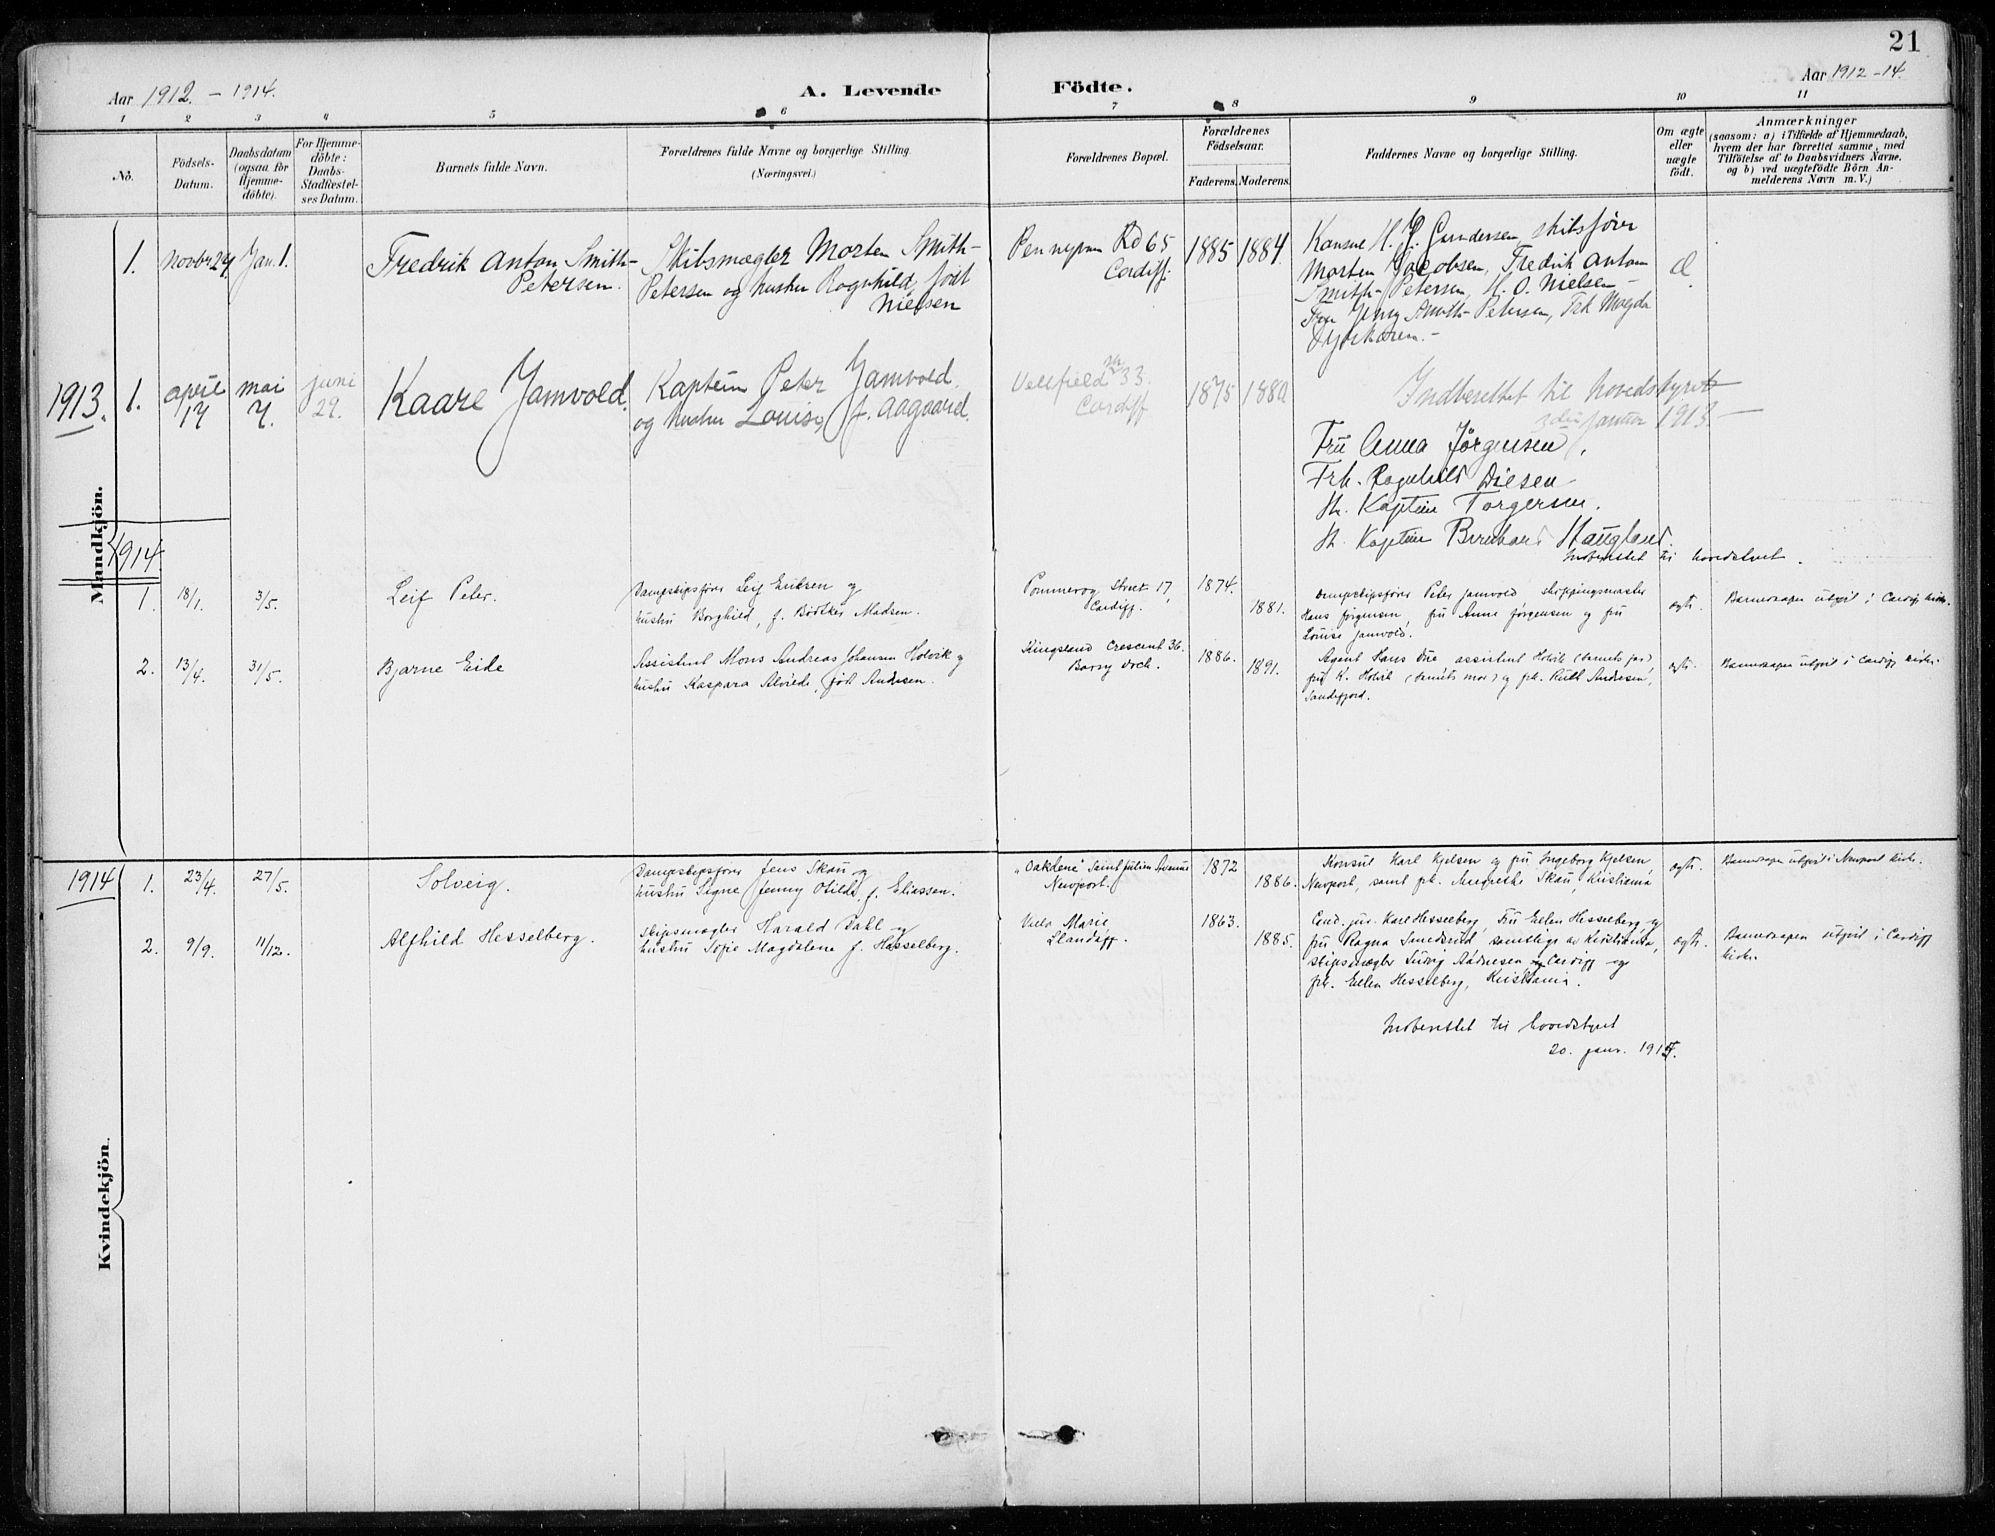 21
Aar 1912. - 1914.
A. Levende
Födte.
Aar 1912-14.
1 2 3 4 5 6 7 8 9 10 11
No.
Födsels-
Datum.
Daabsdatum
(ogsaa for
Hjemme-
döbte).
For Hjemme-
döbte:
Daabs-
Stadfæstel-
ses Datum.
Barnets fulde Navn.
Forældrenes fulde Navne og borgerlige Stilling.
(Næringsvei.)
Forældrenes Bopæl.
Forældrenes
Födselsaar.
Faderens.
Moderens.
Faddernes Navne og borgerlige Stilling.
Om ægte
eller
uægte
födt.
Anmærkninger
(saasom: a) i Tilfælde af Hjemmedaab,
hvem der har forrettet samme, med
Tilföielse af to Daabsvidners Navne,
og b) ved uægtefödte Börn An-
melderens Navn m. V.)
Mandkjön.
1.
Novbr 24
Jan. 1.
Fredrik Anton Smith-
Petersen.
Skibsmægler Morten Smith-
Petersen og hustru Ragnhild, født
Nielsen
Rd 65
Cardiff.
1885
1884
Konsul H. Gundersen, skibsfører
Morten Jacobsen, Fredrik Anton
Smith-Petersen, H. O. Nielsen -
Fru Jenny Smith-Petersen, Frk Magda
1913.
1.
april
17
mai
7.
juni
29.
Kaare Jamvold.
Kaptein Peter Jamvold
og hustru Louise, f. Aagaard.
33.
Cardiff
1875
1880
Indberettet til hovedstyret
januar 1913 -
Fru Anna Jørgensen,
Frk. Ragnhild Diesen
Hr. Kaptein Torgersen.
Hr. Kaptein Bernhard Haugland.
Indberettet til hovedstyret.
1914
1.
18/1.
3/5.
Leif Peter.
Dampskipsfører Leif Eriksen og
hustru Borghild, f. Bødtker Madsen.
Pommeroy Street 17,
Cardiff.
1874.
1881.
Dampskipsfører Peter Jamvold skippingsmaster
Hans Jørgensen, fru Anna Jørgensen og fru
Louise Jamvold.
egte.
Barnedaapen utført i Cardiff kirke.
2.
13/4.
31/5.
Bjarne Eide
Assistent Mons Andreas Johansen Holvik og
hustru Kaspara Alvilde, født Andresen.
Kingsland Crescent 36.
Barry Dock.
1886.
1891.
Agent Hans Due assistent Holvik (barnets far)
fru K. Holvik (barnets mor) og frk. Ruth Andresen,
Sandefjord.
egte.
Barnedaapen utført i Cardiff kirke.
Kvindekjön.
1914
1.
23/4.
27/5.
Solveig.
Dampskipsfører Jens Skau og
hustru Signe Jenny Otilde, f. Eliassen.
"Oakdene" Saint Julien Avenue
Newport.
1872
1886.
Konsul Karl Kjelsen og fru Ingeborg Kjelsen,
Newport, samt frk. Margrethe Skau, Kristiania
egte.
Barnedaapen utført i Newport kirke.
2.
9/9.
11/12.
Alfhild Hesselberg.
Skipsmægler Harald Dahl og
hustru Sofie Magdalene f. Hesselberg.
Villa Marie
Llandaff.
1863.
1885.
Cand. jur. Karl Hesselberg, Fru Ellen Hesselberg og
fru Ragna Smedsrud, samtlige av Kristiania,
skipsmægler Ludvig Aadnesen Cardiff og
frk. Ellen Hesselberg, Kristiania.
egte.
Barnedaapen utført i Cardiff
kirke.
Indberettet til hovedstyret
20. janr. 1915.